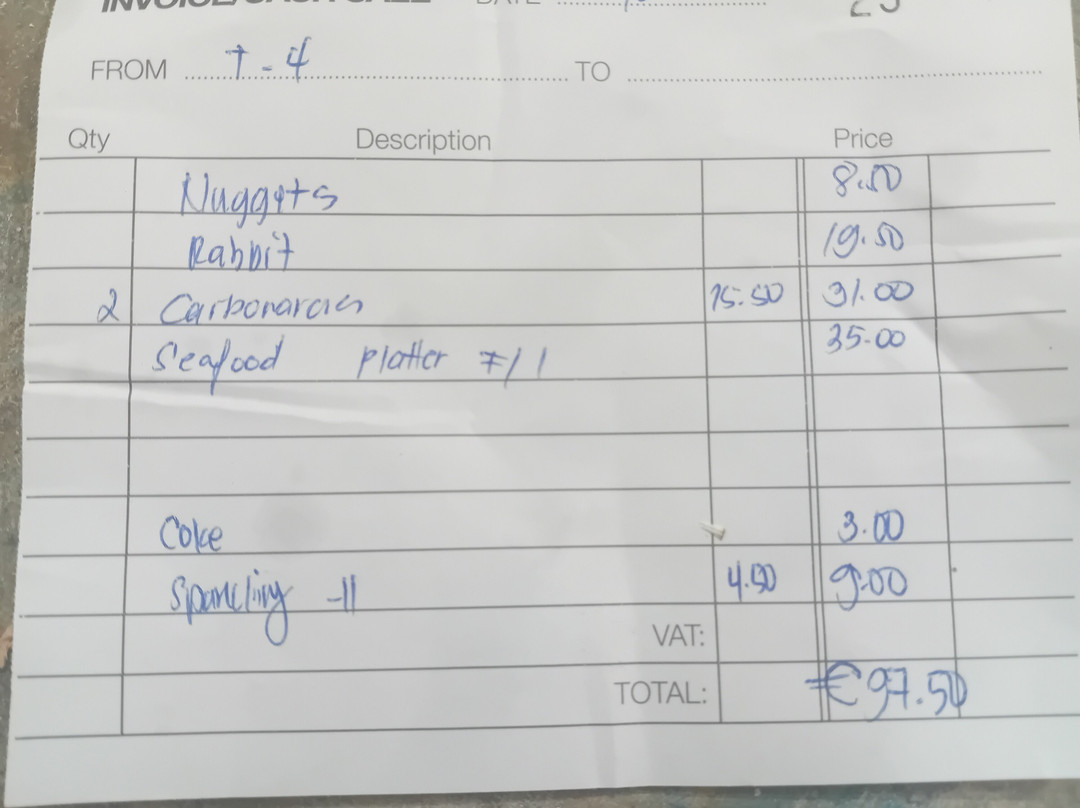 INVOICE/CASH SALE DATE
FROM T-4 TO
Qty Description Price
Nuggets 8.50
Rabbit 19.50
2 Carbonaras 15.50 31.00
Seafood Platter 35.00
Coke 3.00
4.50 9.00
VAT:
TOTAL: €97.50